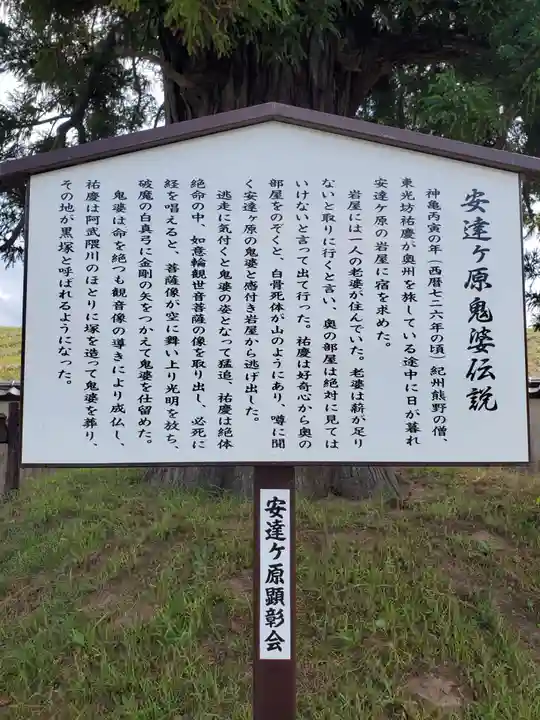 安達ヶ原鬼婆伝説
神亀丙寅の年（西暦七二六年の頃）紀州熊野の僧、
東光坊祐慶が奥州を旅している途中に日が暮れ
安達ヶ原の岩屋に宿を求めた。
岩屋には一人の老婆が住んでいた。老婆は薪が足り
ないと取りに行くと言い、奥の部屋は絶対に見ては
いけないと言って出て行った。祐慶は好奇心から奥の
部屋をのぞくと、白骨死体が山のようにあり、噂に聞
く安達ヶ原の鬼婆と感付き岩屋から逃げ出した。
逃走に気付くと鬼婆の姿となって猛追、祐慶は絶体
絶命の中、如意輪観世音菩薩の像を取り出し、必死に
経を唱えると、菩薩像が空に舞い上り光明を放ち、
破魔の白真弓に金剛の矢をつかえて鬼婆を仕留めた。
鬼婆は命を絶つも観音像の導きにより成仏し、
祐慶は阿武隈川のほとりに塚を造って鬼婆を葬り、
その地が黒塚と呼ばれるようになった。
安達ケ原顕彰会